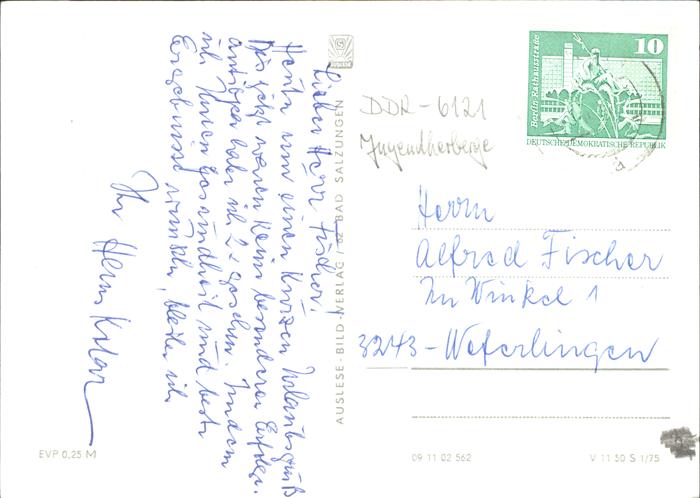 Lieber Herr Fischer!
Heute nun einen kurzen Urlaubsgruß
Bis jetzt waren keine besonderen Erfolge.
habe ich 2 x gesehen. Indem
ich Ihnen Gesundheit und beste
Ergebnisse wünsche, bleibe ich
Ihr Hans
AUSLESE-BILD-VERLAG / 62 BAD SALZUNGEN
DDR-6121
Jugendherberge
10
Berlin, Rathausstraße
DEUTSCHE DEMOKRATISCHE REPUBLIK
Herrn
Alfred Fischer
Im Winkel 1
3243-Weferlingen
EVP 0,25 M
09 11 02 562
V 11 50 S 1/75